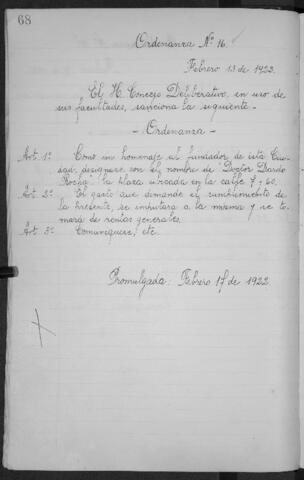 68
Ordenanza Nº 16
Febrero 13 de 1922.
El H. Concejo Deliberativo, en uso de
sus facultades, sanciona la siguiente -
- Ordenanza -
Art. 1º Como un homenaje al fundador de esta Ciu-
dad, desígnase con el nombre de Doctor Dardo
Rocha, la plaza ubicada en la calle 7 y 60.
Art. 2º El gasto que demande el cumplimiento de
la presente, se imputará a la misma y se to-
mará de rentas generales.
Art. 3º Comuníquese, etc.
Promulgada: Febrero 17 de 1922.